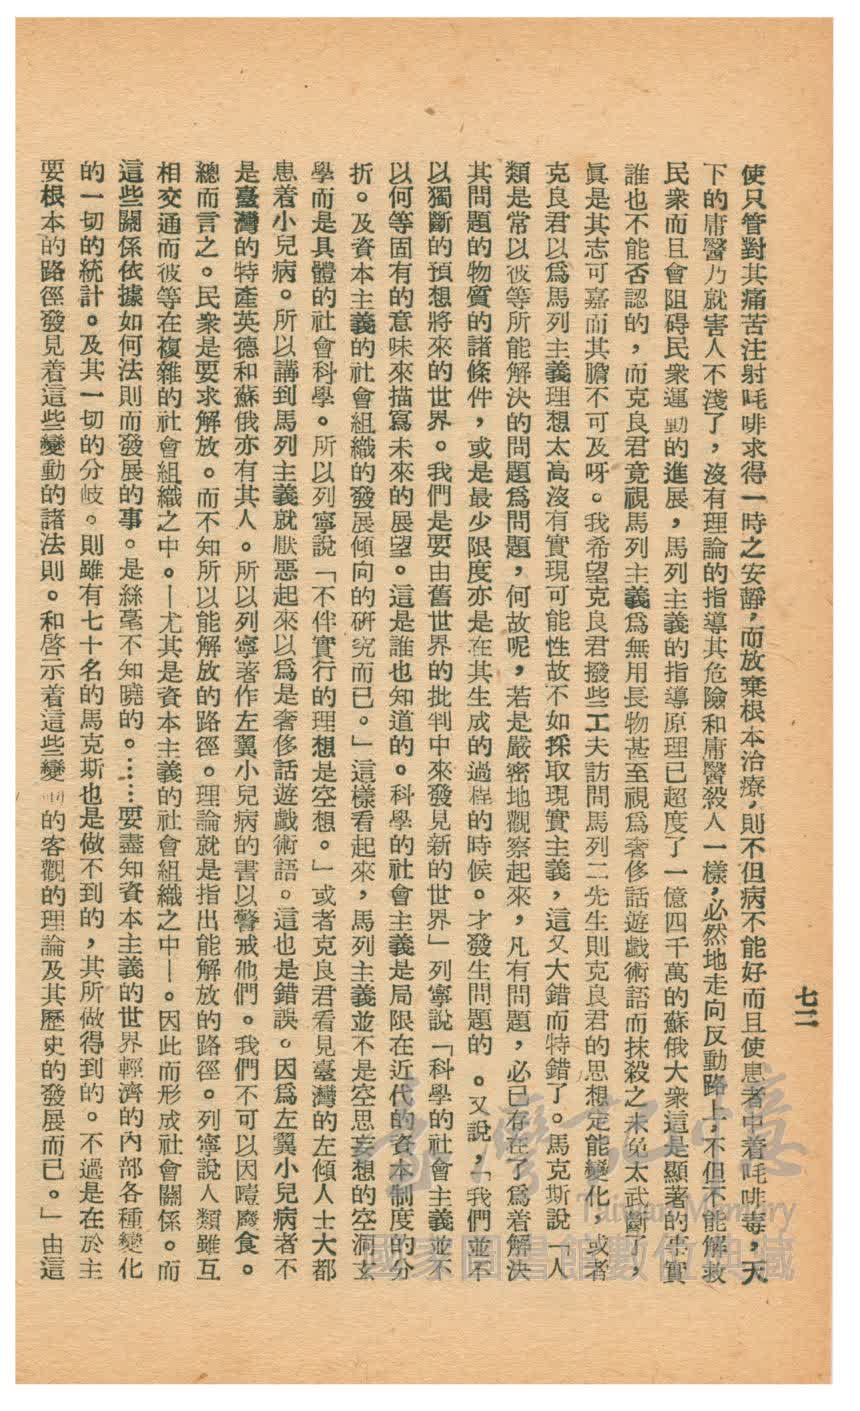 七二
使只管對其痛苦注射吒啡求得一時之安靜，而放棄根本治療，則不但病不能好而且使患者中着吒啡毒，天
下的庸醫乃就害人不淺了，沒有理論的指導其危險和庸醫殺人一樣，必然地走向反動路上，不但不能解救
民衆而且會阻碍民衆運動的進展，馬列主義的指導原理已超度了一億四千萬的蘇俄大衆這是顯著的事實
誰也不能否認的，而克良君竟視馬列主義爲無用長物甚至視爲奢侈話遊戲術語而抹殺之未免太武斷了，
眞是其志可嘉而其膽不可及呀。我希望克良君撥些工夫訪問馬列二先生則克良君的思想定能變化，或者
克良君以爲馬列主義理想太高沒有實現可能性故不如採取現實主義，這又大錯而特錯了。馬克斯說「人
類是常以彼等所能解決的問題爲問題，何故呢，若是嚴密地觀察起來，凡有問題，必已存在了爲着解決
其問題的物質的諸條件，或是最少限度亦是在其生成的過程的時候。才發生問題的。又說，「我們並不
以獨斷的預想將來的世界。我們是要由舊世界的批判中來發見新的世界」列寧說「科學的社會主義並不
以何等固有的意味來描寫未來的展望。這是誰也知道的。科學的社會主義是局限在近代的資本制度的分
折。及資本主義的社會組織的發展傾向的研究而已。」這樣看起來，馬列主義並不是空思妄想的空洞玄
學而是具體的社會科學。所以列寧說「不伴實行的理想是空想。」或者克良君看見臺灣的左傾人士大都
患着小兒病。所以講到馬列主義就厭惡起來以爲是奢侈話遊戲術語。這也是錯誤。因爲左翼小兒病者不
是臺灣的特產英德和蘇俄亦有其人。所以列寧著作左翼小兒病的書以警戒他們。我們不可以因噎廢食。
總而言之。民衆是要求解放。而不知所以能解放的路徑。理論就是指出能解放的路徑。列寧說人類雖互
相交通而彼等在複雜的社會組織之中。—尤其是資本主義的社會組織之中—。因此而形成社會關係。而
這些關係依據如何法則而發展的事。是絲毫不知曉的。……要盡知資本主義的世界輕濟的內部各種變化
的一切的統計。及其一切的分岐。則雖有七十名的馬克斯也是做不到的，其所做得到的。不過是在於主
要根本的路徑發見着這些變動的諸法則。和啓示着這些變的客觀的理論及其歷史的發展而已。」由這
臺灣記憶
Taiwan Memory
國家圖書館數位典藏